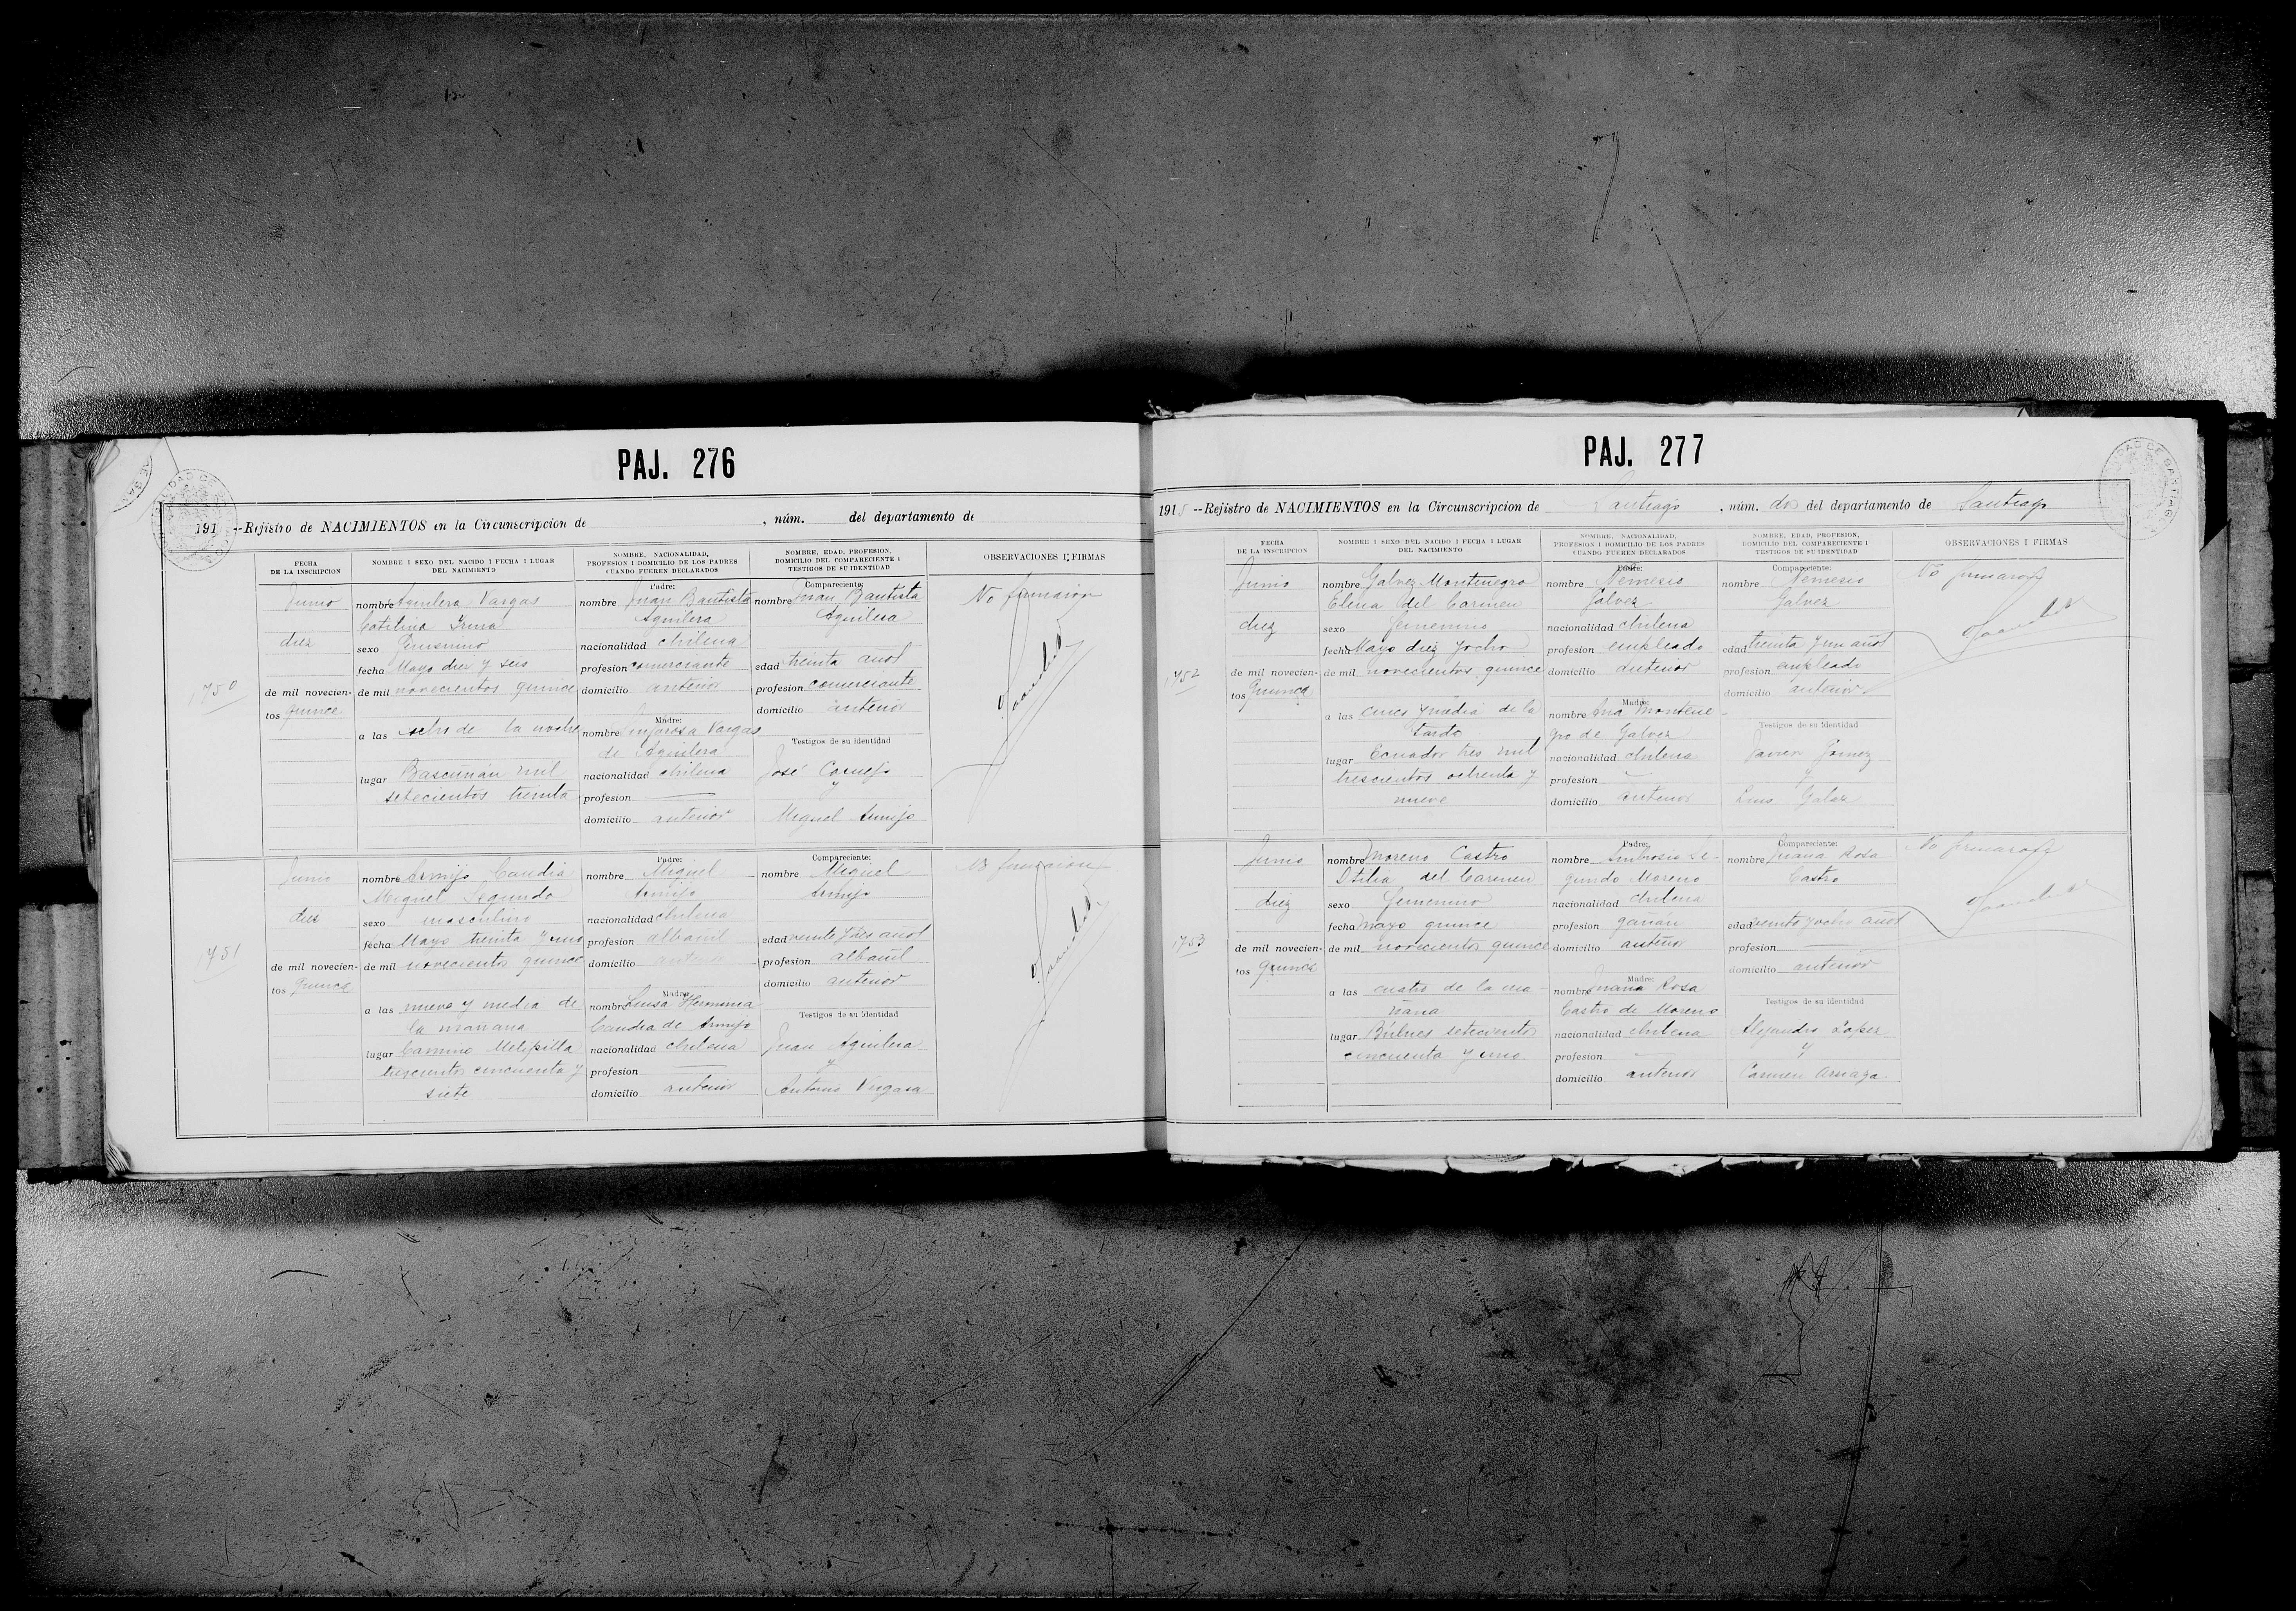 PAJ. 276
191 --Rejistro de NACIMIENTOS en la Circunscripcion de , núm. del departamento de
FECHA
DE LA INSCRIPCION
NOMBRE I SEXO DEL NACIDO I FECHA I LUGAR
DEL NACIMIENTO
NOMBRE, NACIONALIDAD,
PROFESION I DOMICILIO DE LOS PADRES
CUANDO FUEREN DECLARADOS
NOMBRE, EDAD, PROFESION,
DOMICILIO DEL COMPARECIENTE I
TESTIGOS DE SU IDENTIDAD
OBSERVACIONES I FIRMAS
1750
Junio
diez
de mil novecien-
tos quince
nombre Aguilera Vargas
Catilina Irma
sexo Femenino
fecha Mayo diez y seis
de mil novecientos quince
a las ocho de la noche
lugar Bascuñán mil
setecientos treinta
Padre:
nombre Juan Bautista
Aguilera
nacionalidad chilena
profesion comerciante
domicilio anterior
Madre:
nombre Sinforosa Vargas
de Aguilera
nacionalidad chilena
profesion
domicilio anterior
Compareciente:
nombre Juan Bautista
Aguilera
edad treinta años
profesion comerciante
domicilio anterior
Testigos de su identidad
José Cornejo
y
Miguel Armijo
No firmaron
1751
Junio
diez
de mil novecien-
tos quince
nombre Armijo Candia
Miguel Segundo
sexo masculino
fecha Mayo treinta y uno
de mil novecientos quince
a las nueve y media de
la mañana
lugar Camino Melipilla
trescientos cincuenta y
siete
Padre:
nombre Miguel
Armijo
nacionalidad chilena
profesion albañil
domicilio anterior
Madre:
nombre Luisa Herminia
Candia de Armijo
nacionalidad chilena
profesion
domicilio anterior
Compareciente:
nombre Miguel
Armijo
edad veinte y tres años
profesion albañil
domicilio anterior
Testigos de su identidad
Juan Aguilera
y
Antonio Vergara
No firmaron
PAJ. 277
1915 --Rejistro de NACIMIENTOS en la Circunscripcion de Santiago , núm. dos del departamento de Santiago
FECHA
DE LA INSCRIPCION
NOMBRE I SEXO DEL NACIDO I FECHA I LUGAR
DEL NACIMIENTO
NOMBRE, NACIONALIDAD,
PROFESION I DOMICILIO DE LOS PADRES
CUANDO FUEREN DECLARADOS
NOMBRE, EDAD, PROFESION,
DOMICILIO DEL COMPARECIENTE I
TESTIGOS DE SU IDENTIDAD
OBSERVACIONES I FIRMAS
1752
Junio
diez
de mil novecien-
tos quince
nombre Galvez Montenegro
Elena del Carmen
sexo femenino
fecha Mayo diez y ocho
de mil novecientos quince
a las cinco y media de la
tarde
lugar Ecuador tres mil
trescientos ochenta y
nueve
Padre:
nombre Nemesio
Galvez
nacionalidad chilena
profesion empleado
domicilio anterior
Madre:
nombre Ana Montene-
gro de Galvez
nacionalidad chilena
profesion
domicilio anterior
Compareciente:
nombre Nemesio
Galvez
edad treinta y un años
profesion empleado
domicilio anterior
Testigos de su identidad
Javier Gomez
y
Luis Galaz
No firmaron
1753
Junio
diez
de mil novecien-
tos quince
nombre Moreno Castro
Otilia del Carmen
sexo Femenino
fecha mayo quince
de mil novecientos quince
a las cuatro de la ma-
ñana
lugar Búlnes setecientos
cincuenta y uno
Padre:
nombre Ambrosio Se-
gundo Moreno
nacionalidad chilena
profesion gañán
domicilio anterior
Madre:
nombre Juana Rosa
Castro de Moreno
nacionalidad chilena
profesion
domicilio anterior
Compareciente:
nombre Juana Rosa
Castro
edad veinte y ocho años
profesion
domicilio anterior
Testigos de su identidad
Alejandro Lopez
y
Carmen Arriaza
No firmaron